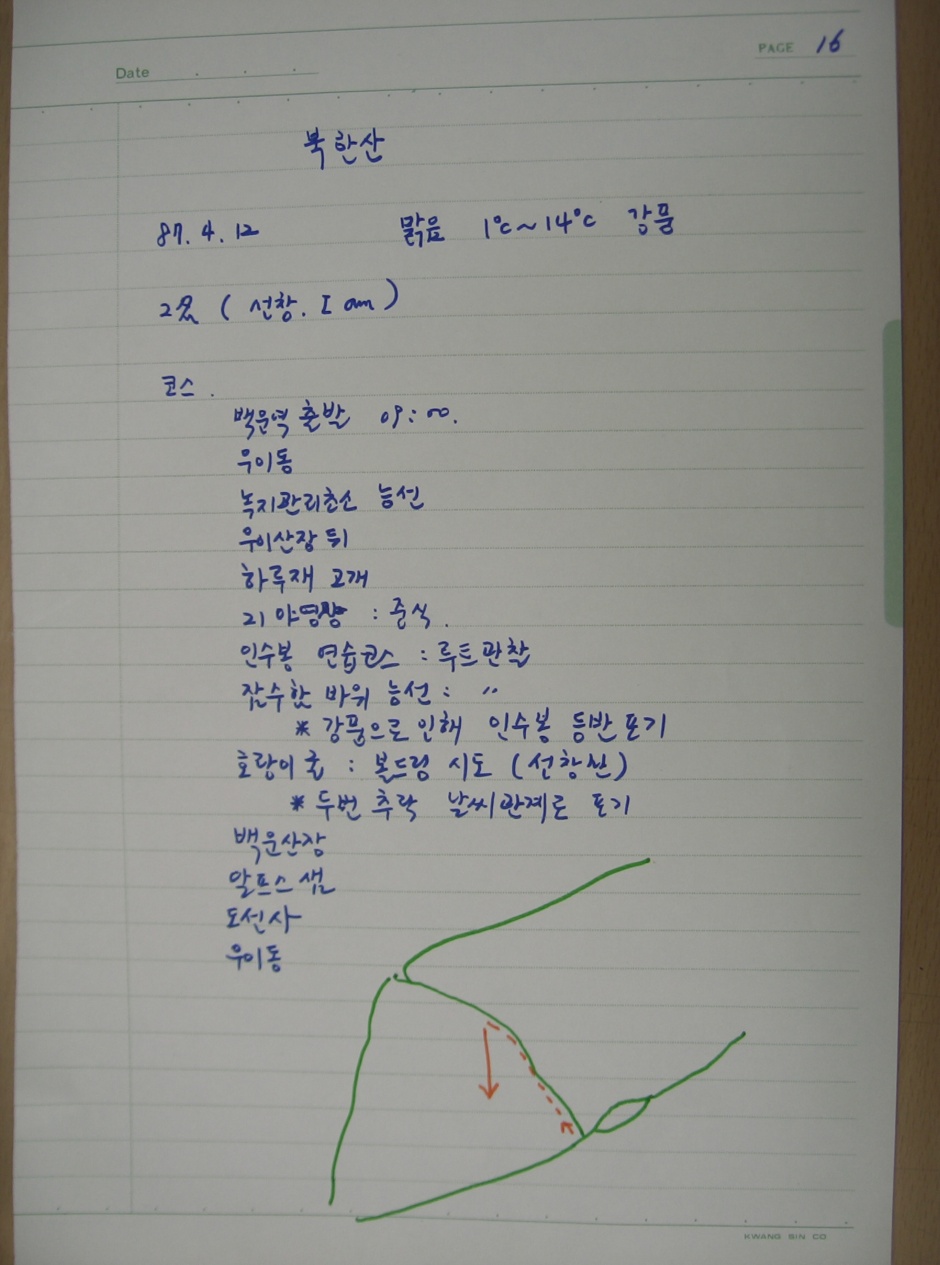 PAGE 16
Date
북한산
87. 4. 12 맑음 1°C~14°C 강풍
2名 ( 선창. I am )
코스.
백운역 출발 09:00.
우이동
녹지관리초소 능선
우이산장 뒤
하루재 고개
21 야영장 : 중식.
인수봉 연습코스 : 루트관찰
잠수함 바위 능선 : 〃
* 강풍으로 인해 인수봉 등반 포기
호랑이 굴 : 볼드링 시도 (선창씨)
* 두번 추락 날씨관계로 포기
백운산장
알프스 샘
도선사
우이동
KWANG SIN CO